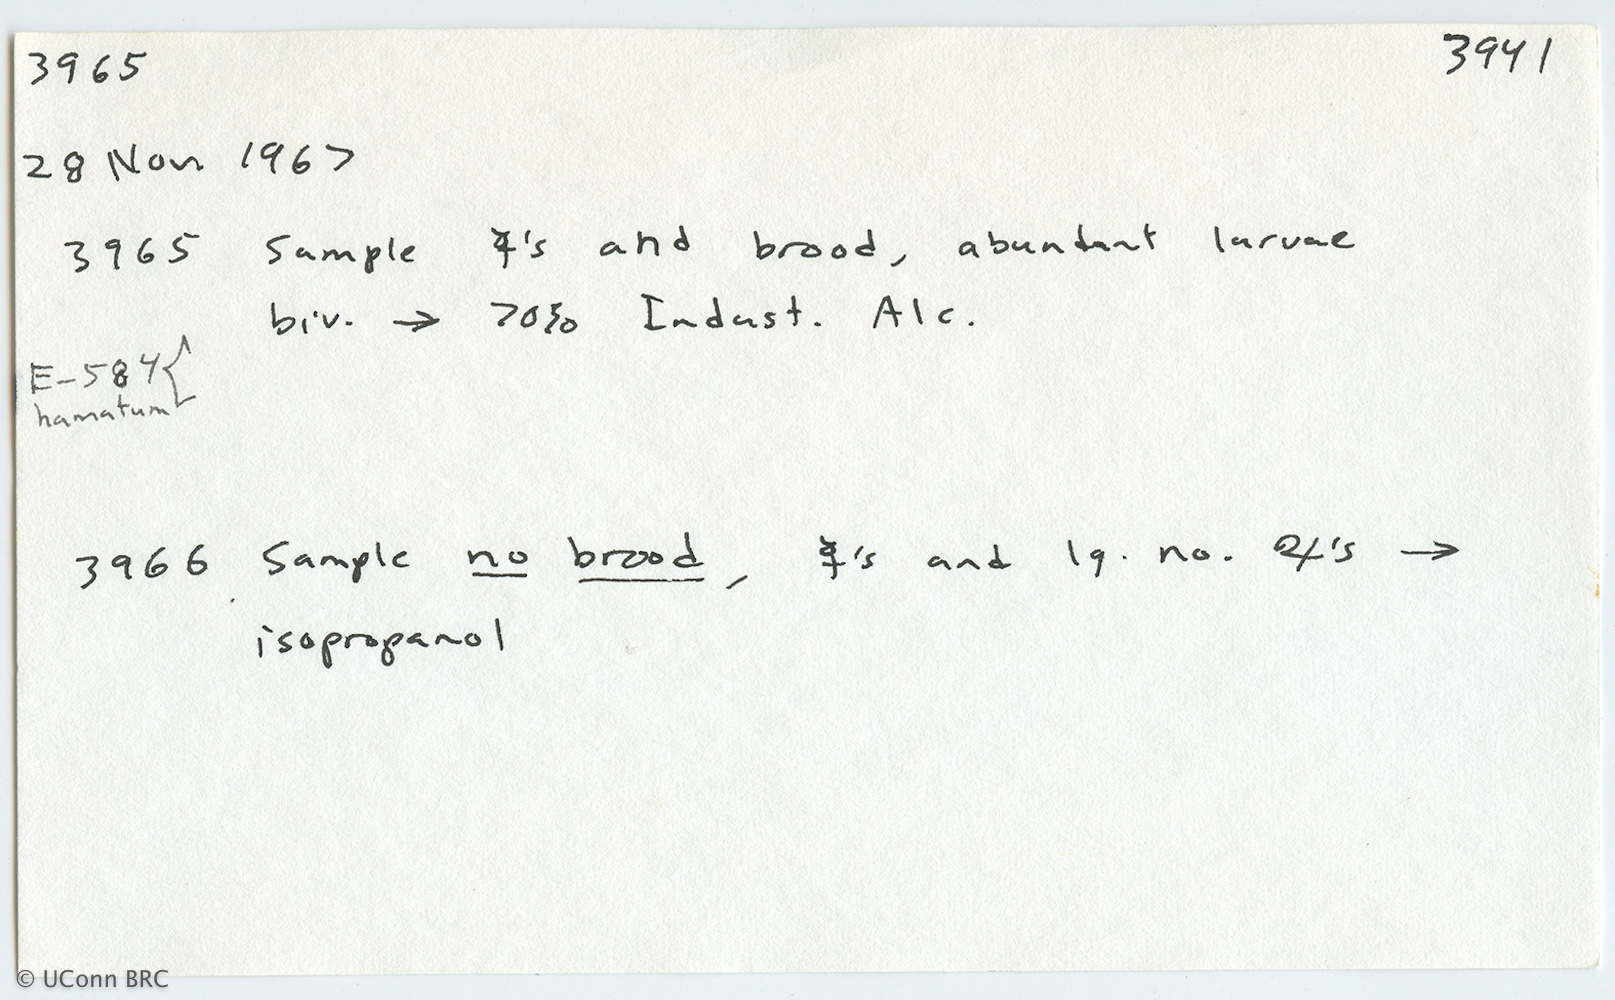 3965 3941
28 Nov 1967
3965 Sample ☿'s and brood, abundant larvae
biv. → 70% Indust. Alc.
E-584 {
hamatum
3966 Sample no brood, ☿'s and lg. no. 's →
isopropanol
© UConn BRC